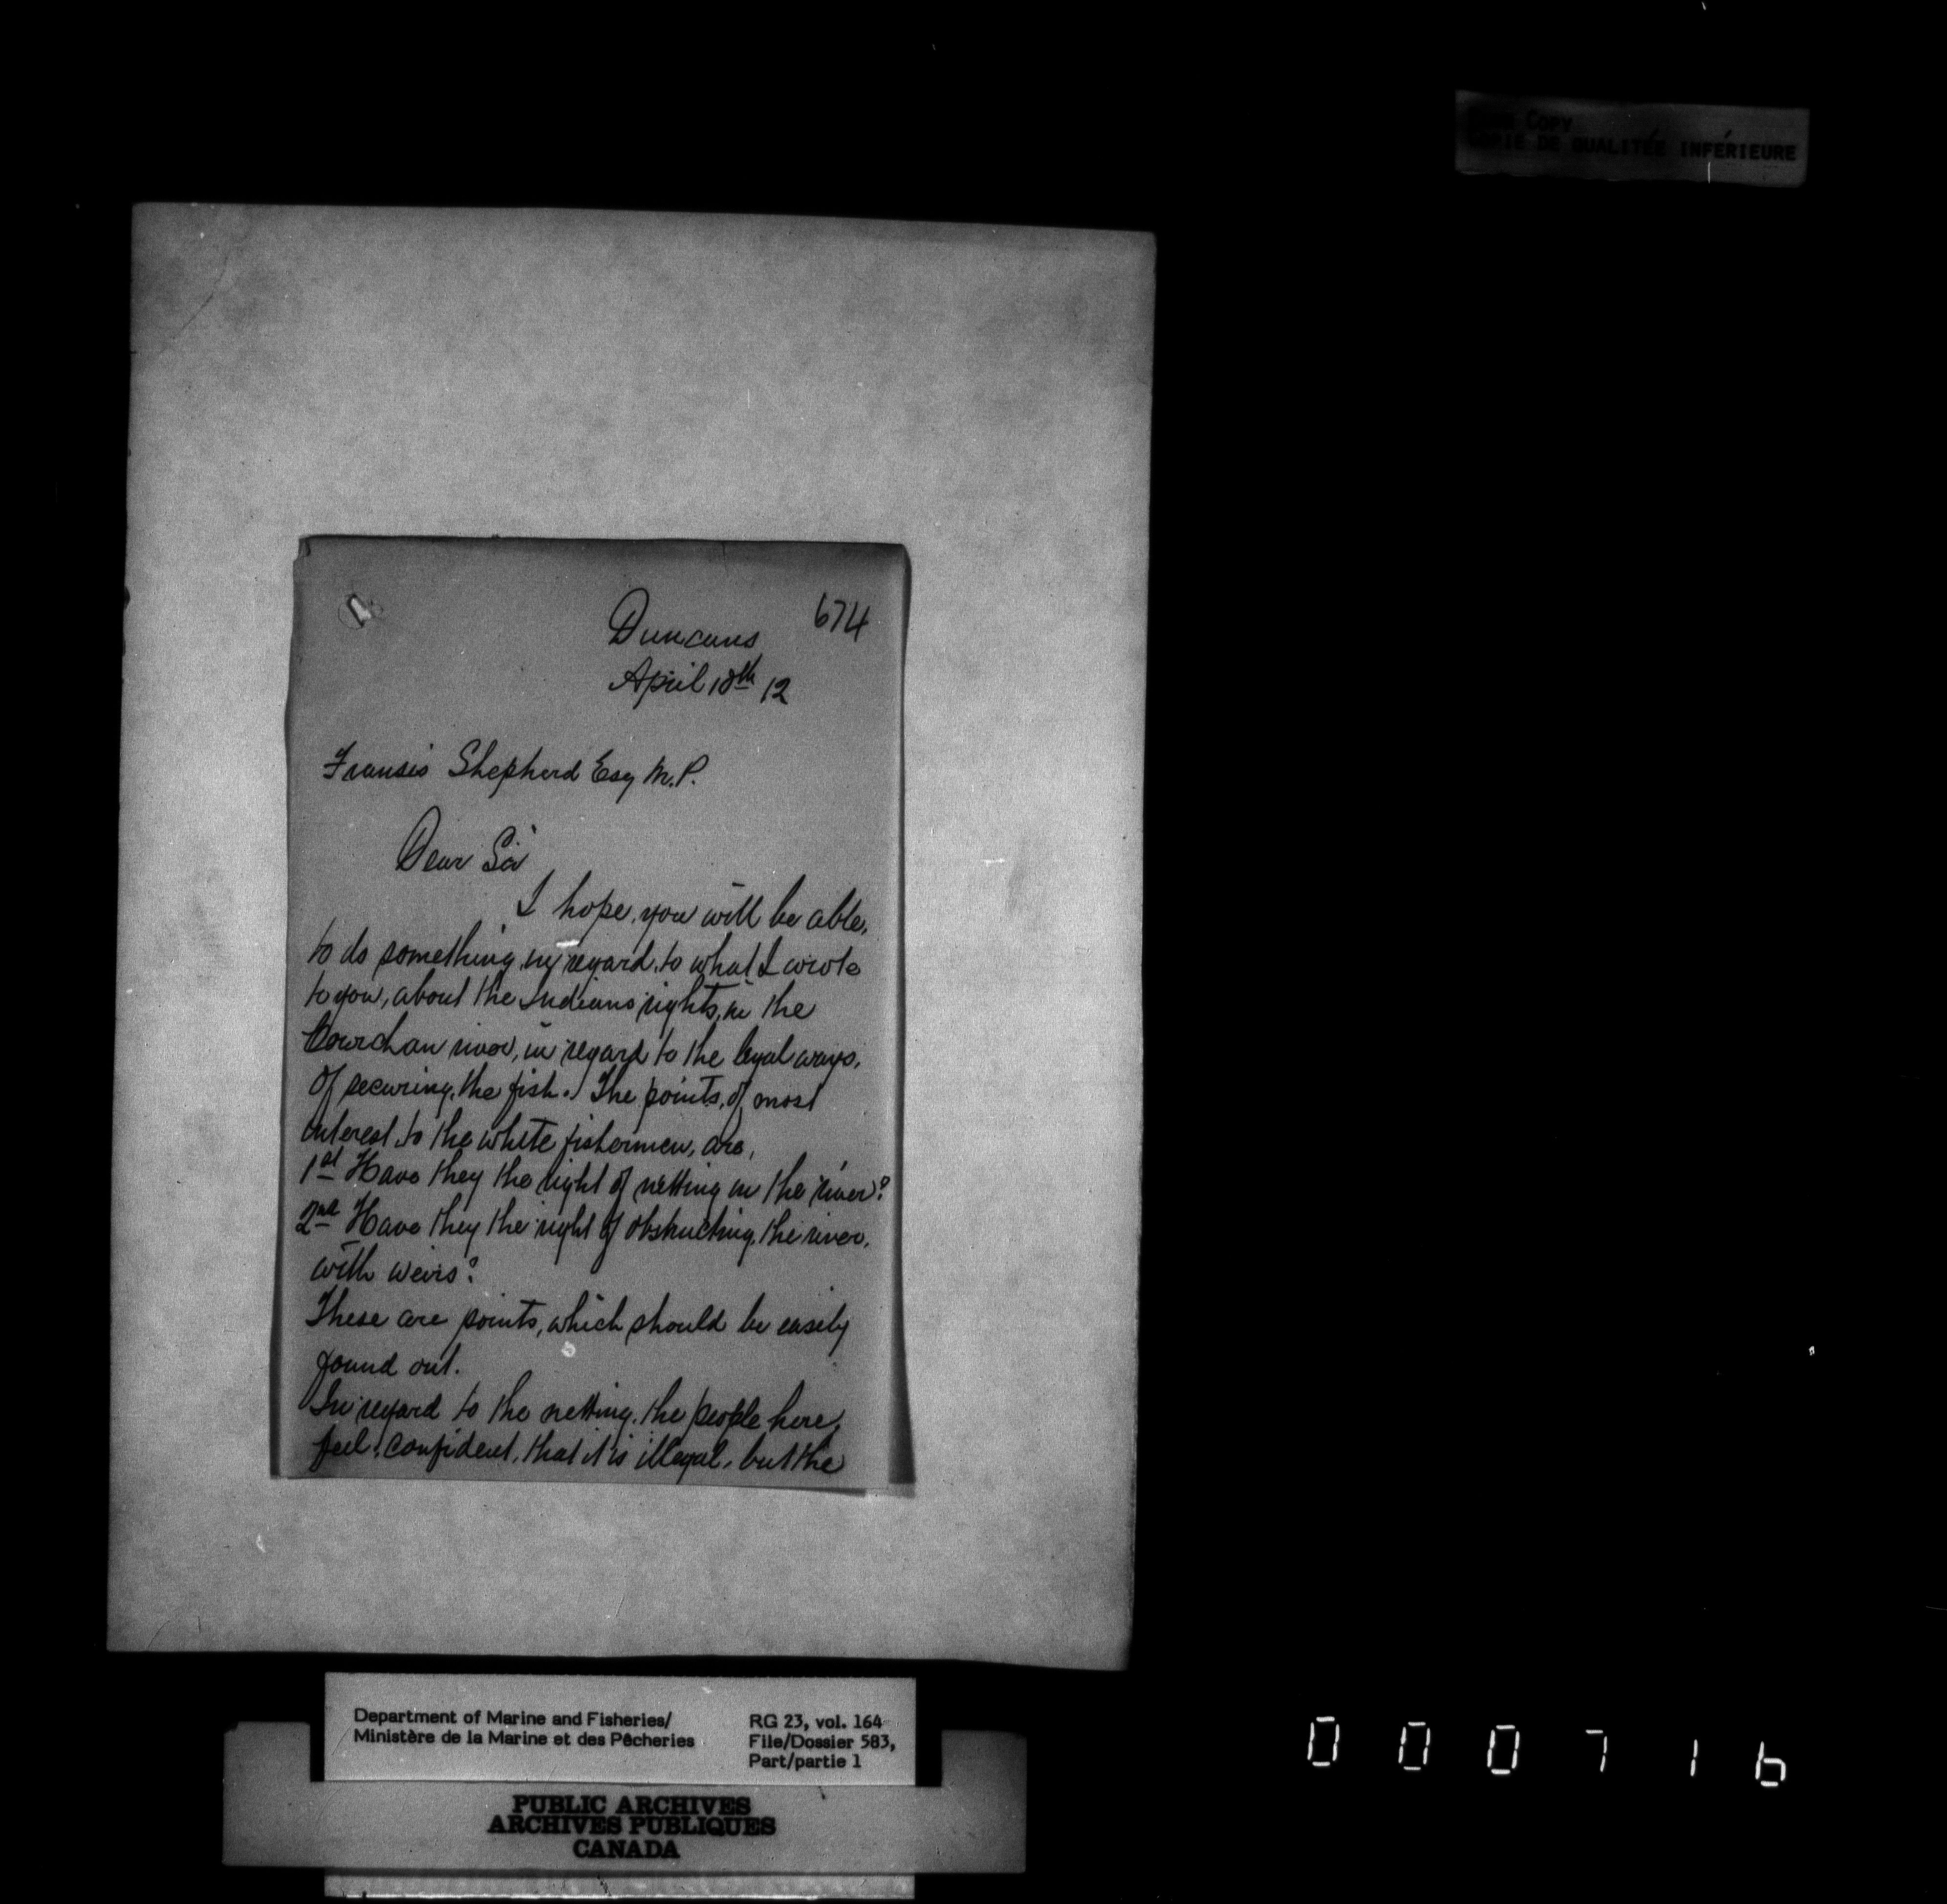 Copy
COPIE DE QUALITÉE INFÉRIEURE
674
Duncans
April 18th 12
Fransis Shepherd Esq M.P.
Dear Sir
I hope, you will be able,
to do something, in regard, to what I wrote
to you, about the Indians rights, in the
Cowichan river, in regard to the legal ways,
of securing, the fish. The points, of most
interest, to the white fishermen, are,
1st Have they the right of netting in the river?
2nd Have they the right of obstructing, the river,
with weirs?
These are points, which should be easily
found out.
In regard to the netting, the people here,
feel, confident, that it is illegal, but the
Department of Marine and Fisheries/
Ministère de la Marine et des Pêcheries
RG 23, vol. 164
File/Dossier 583,
Part/partie 1
PUBLIC ARCHIVES
ARCHIVES PUBLIQUES
CANADA
000716